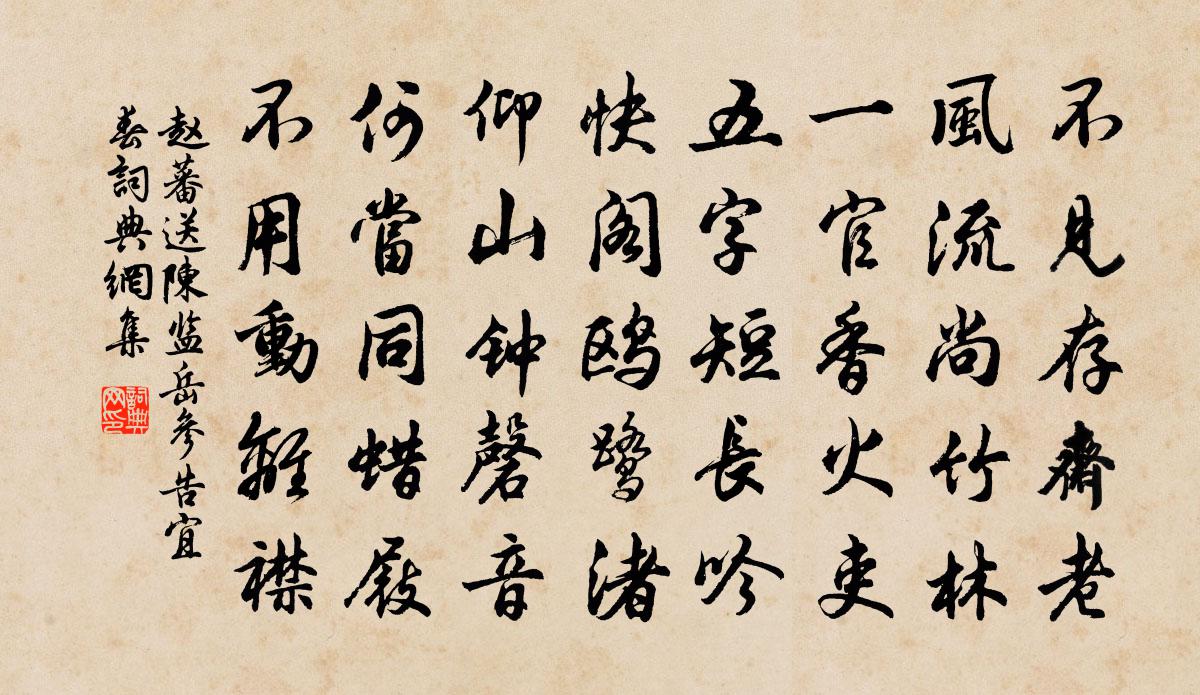 不見存齋老
風流尚竹林
一官香火吏
五字短長吟
快阁鷗鷺渚
仰山钟磬音
何當同蜡屐
不用動離襟
赵蕃送陳监岳參告宜
春詞典網集
詞典网印